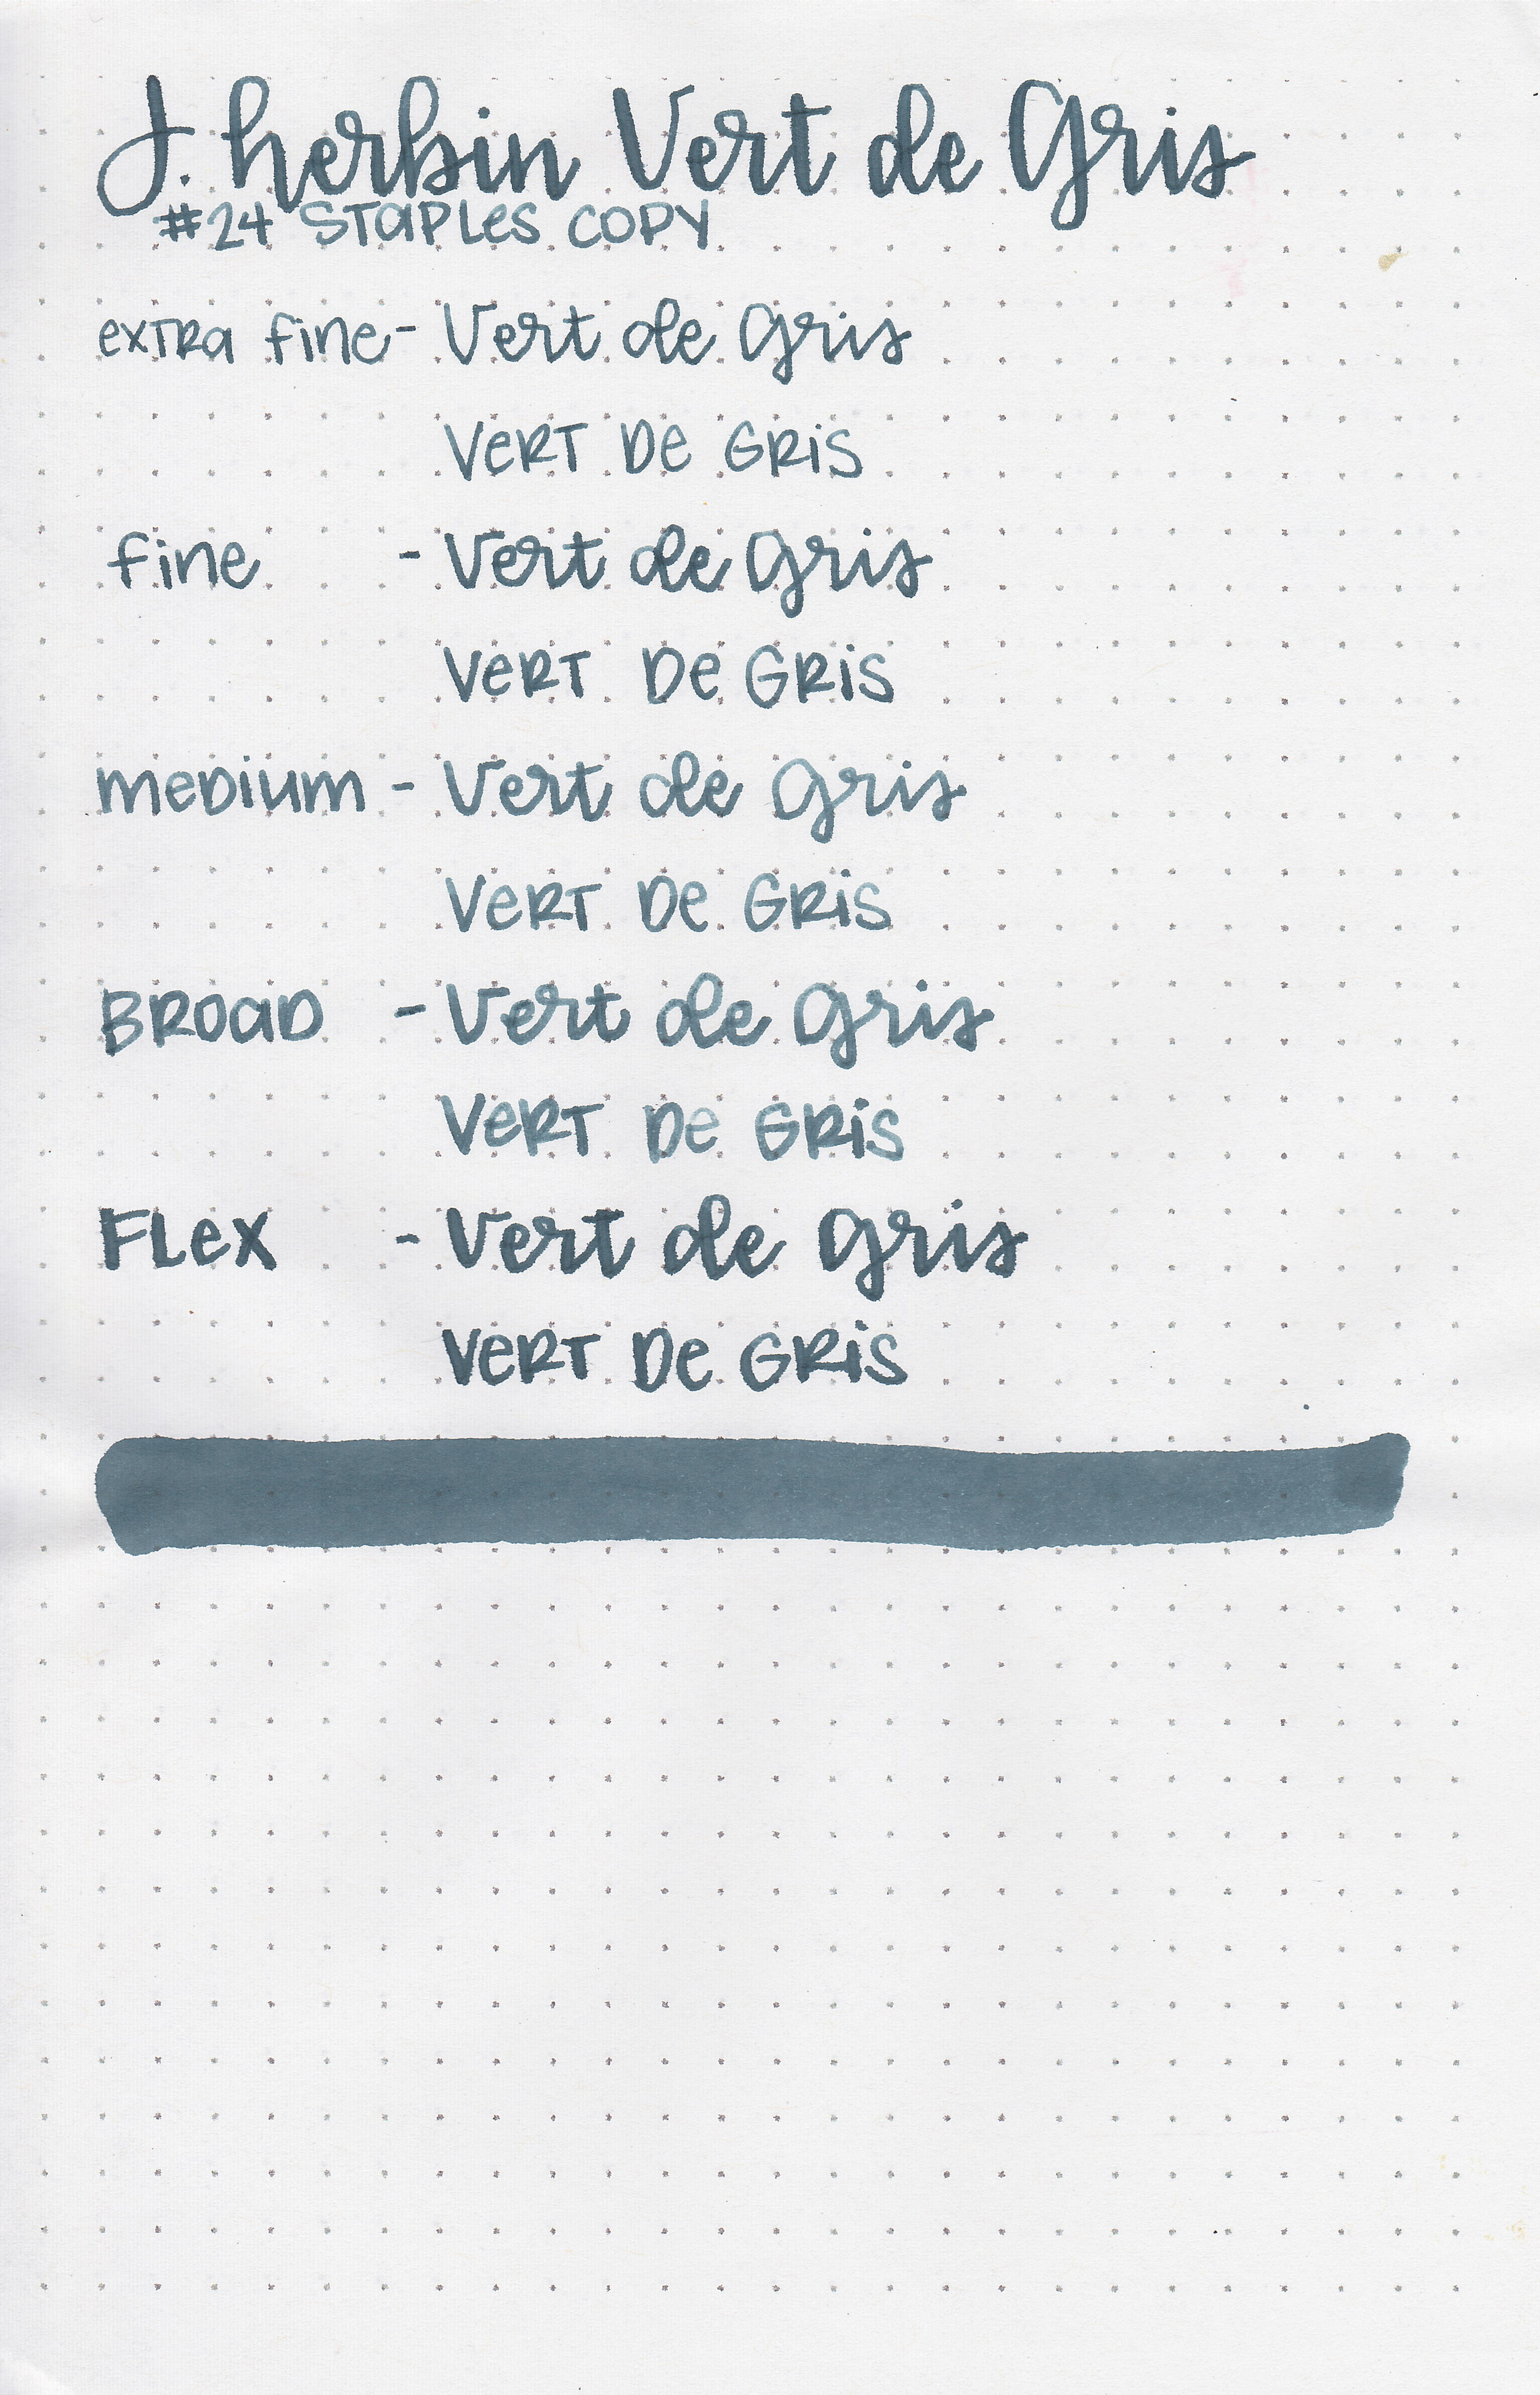 J. herbin Vert de Gris
#24 Staples copy
extra fine - Vert de Gris
Vert De Gris
fine - Vert de Gris
Vert De Gris
medium - Vert de Gris
Vert De Gris
Broad - Vert de Gris
Vert De Gris
Flex - Vert de Gris
Vert De Gris